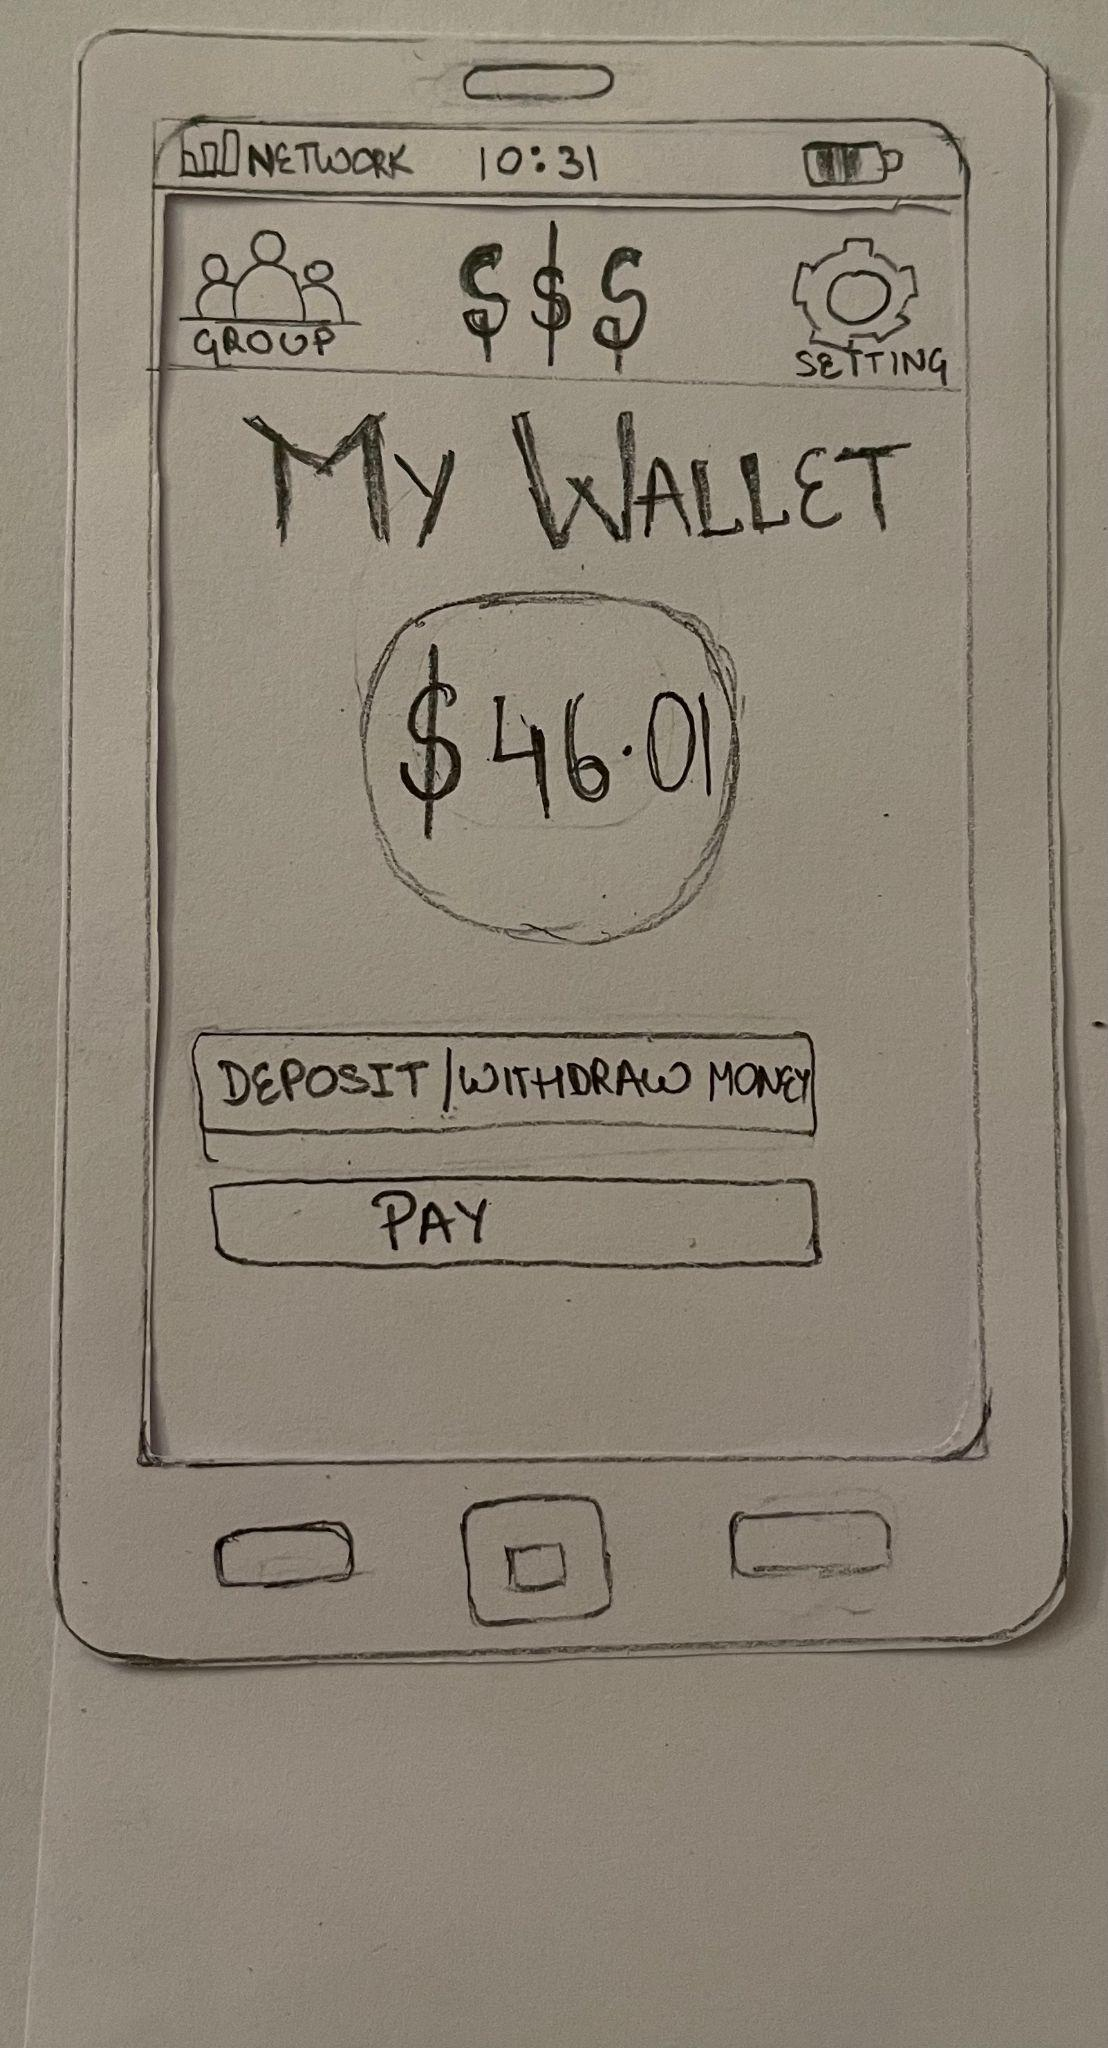 NETWORK 10:31
$ $ $
GROUP
SETTING
MY WALLET
$46.01
DEPOSIT/WITHDRAW MONEY
PAY